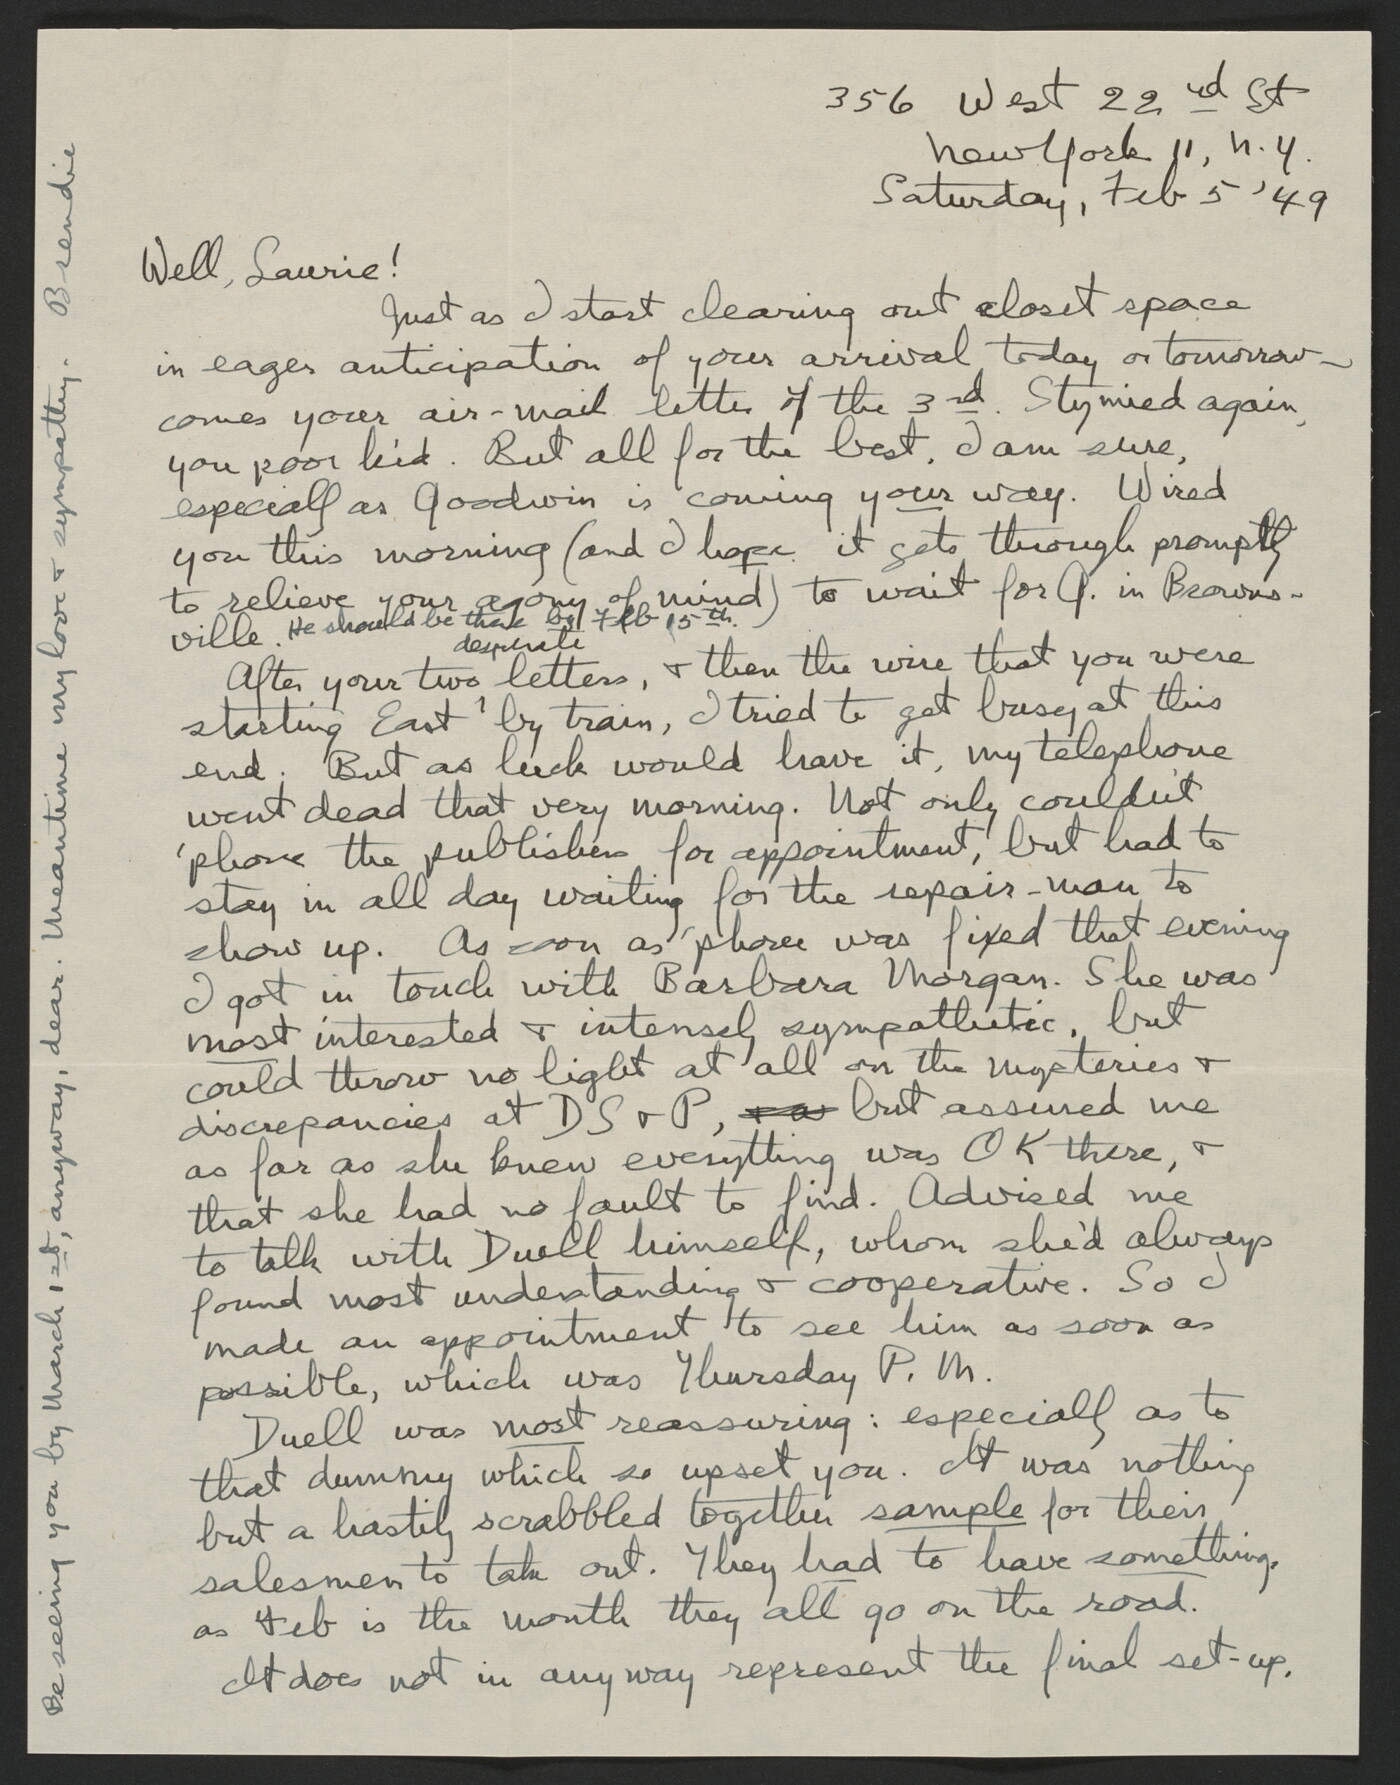 356 West 22nd St
New York 11, N.Y.
Saturday, Feb 5 '49
Well, Laurie!
Just as I start clearing out closet space
in eager anticipation of your arrival today or tomorrow —
comes your air-mail letter of the 3rd. Stymied again,
you poor kid. But all for the best, I am sure,
especially as Goodwin is coming your way. Wired
you this morning (and I hope it gets through promptly
to relieve your agony of mind) to wait for G. in Browns-
ville. He should be there by Feb 15th.
desperate
After your two letters, & then the wire that you were
starting East by train, I tried to get busy at this
end. But as luck would have it, my telephone
went dead that very morning. Not only couldn't
'phone the publishers for appointment, but had to
stay in all day waiting for the repair-man to
show up. As soon as 'phone was fixed that evening
I got in touch with Barbara Morgan. She was
most interested & intensely sympathetic, but
could throw no light at all on the mysteries &
discrepancies at DS & P, but assured me
as far as she knew everything was OK there, &
that she had no fault to find. Advised me
to talk with Duell himself, whom she'd always
found most understanding & cooperative. So I
made an appointment to see him as soon as
possible, which was Thursday P.M.
Duell was most reassuring: especially as to
that dummy which so upset you. It was nothing
but a hastily scrabbled together sample for their
salesmen to take out. They had to have something,
as Feb is the month they all go on the road.
It does not in any way represent the final set-up.
Be seeing you by March 1st, anyway, dear. Meantime my love & sympathy. Bsendie